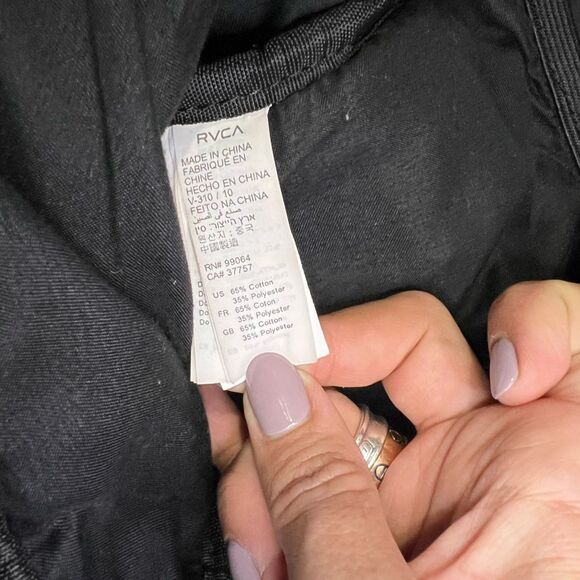 RVCA
MADE IN CHINA
FABRIQUÉ EN
CHINE
HECHO EN CHINA
V-310 / 10
FEITO NA CHINA
صنع في الصين
ארץ הייצור: סין
원산지 : 중국
中國製造
RN# 99064
CA# 37757
US 65% Cotton
35% Polyester
FR 65% Coton
35% Polyester
GB 65% Cotton
35% Polyester